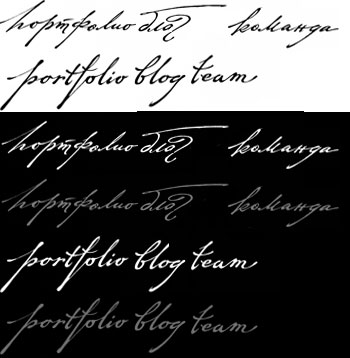 портфолио блог команда
portfolio blog team
портфолио блог команда
портфолио блог команда
portfolio blog team
portfolio blog team